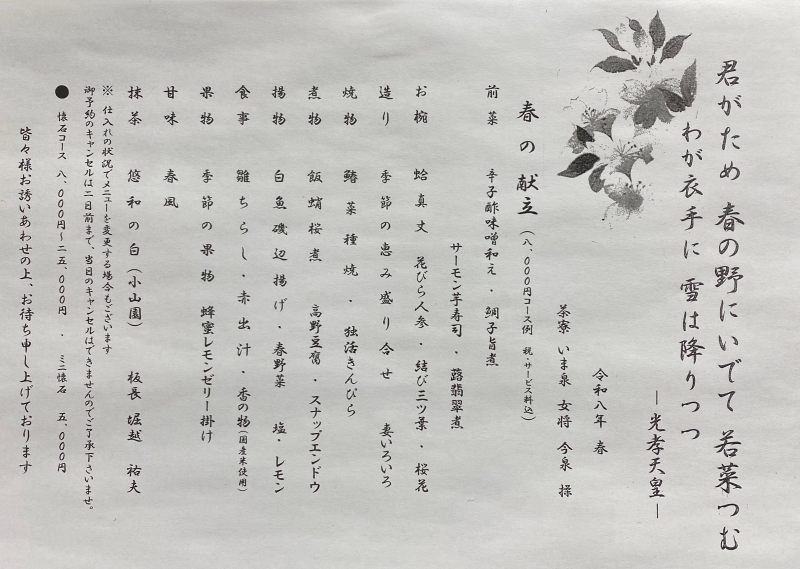 君がため 春の野にいでて 若菜つむ
わが衣手に 雪は降りつつ
―光孝天皇―
令和八年 春
茶寮 いま泉 女将 今泉 操
春の献立(八、〇〇〇円コース例 税・サービス料込)
前菜 辛子酢味噌和え・鯛子旨煮
サーモン芋寿司・蕗翡翠煮
お椀 蛤真丈 花びら人参・結び三ツ葉・桜花
造り 季節の恵み盛り合せ 妻いろいろ
焼物 鰆菜種焼・独活きんぴら
煮物 飯蛸桜煮 高野豆腐・スナップエンドウ
揚物 白魚磯辺揚げ・春野菜 塩・レモン
食事 雛ちらし・赤出汁・香の物(国産米使用)
果物 季節の果物 蜂蜜レモンゼリー掛け
甘味 春風
抹茶 悠和の白(小山園) 板長 堀越 祐夫
※ 仕入れの状況でメニューを変更する場合もございます
御予約のキャンセルは二日前まで、当日のキャンセルはできませんのでご了承下さいませ。
● 懐石コース 八、〇〇〇円~二五、〇〇〇円 ・ ミニ懐石 五、〇〇〇円
皆々様お誘いあわせの上、お待ち申し上げております